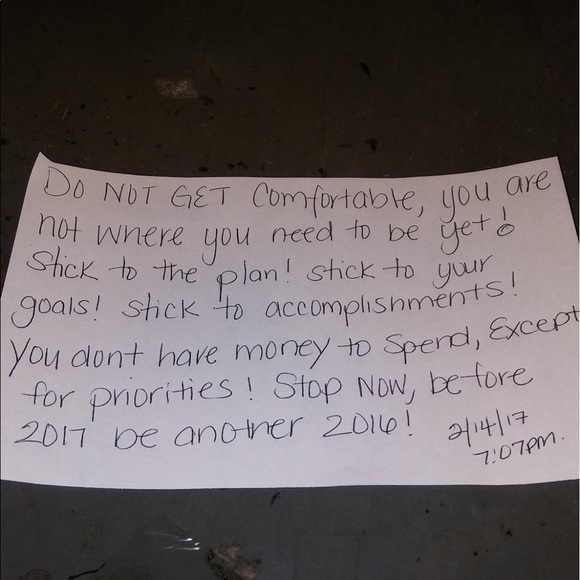 DO NOT GET Comfortable, you are
not where you need to be yet!
Stick to the plan! stick to your
goals! stick to accomplishments!
You dont have money to spend, Except
for priorities! Stop Now, before
2017 be another 2016!
2/14/17
7:07pm.